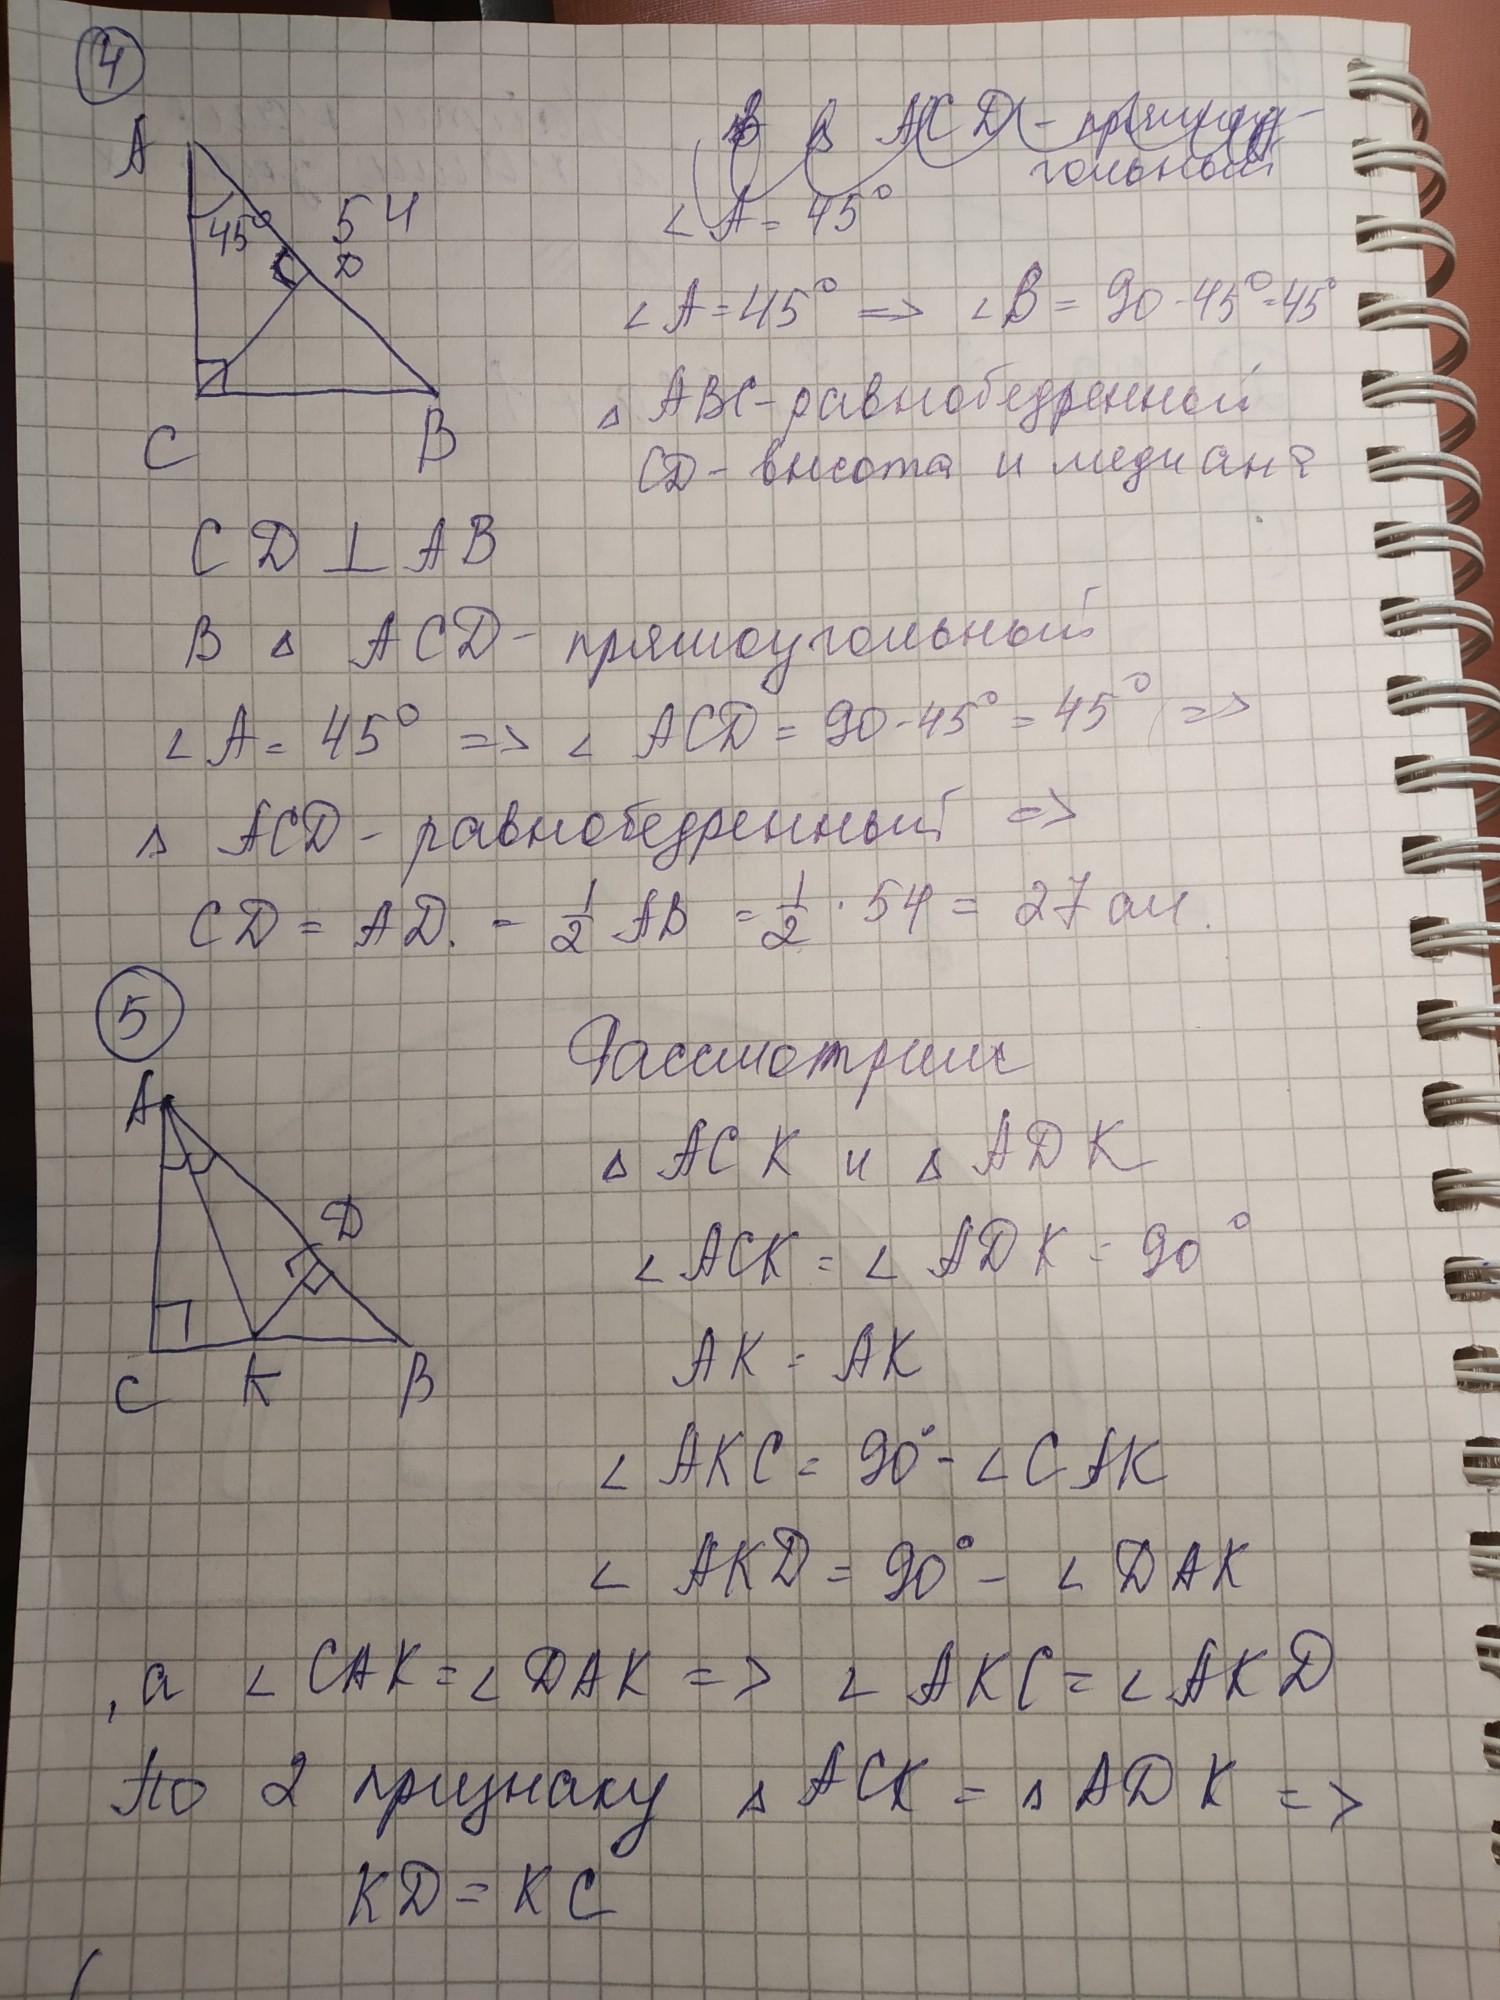 4
A
45°
54
D
C
B
В Δ ACD - прямоу-
гольный
∠A = 45°
∠A = 45° => ∠B = 90 - 45° = 45°
Δ ABC - равнобедренный
CD - высота и медиана
CD ⊥ AB
В Δ ACD - прямоугольный
∠A = 45° => ∠ACD = 90 - 45° = 45° =>
Δ ACD - равнобедренный =>
CD = AD. = 1/2 AB = 1/2 · 54 = 27 см.
5
A
D
C K B
Рассмотрим
Δ ACK и Δ ADK
∠ACK = ∠ADK = 90°
AK = AK
∠AKC = 90° - ∠CAK
∠AKD = 90° - ∠DAK
, а ∠CAK = ∠DAK => ∠AKC = ∠AKD
По 2 признаку Δ ACK = Δ ADK =>
KD = KC